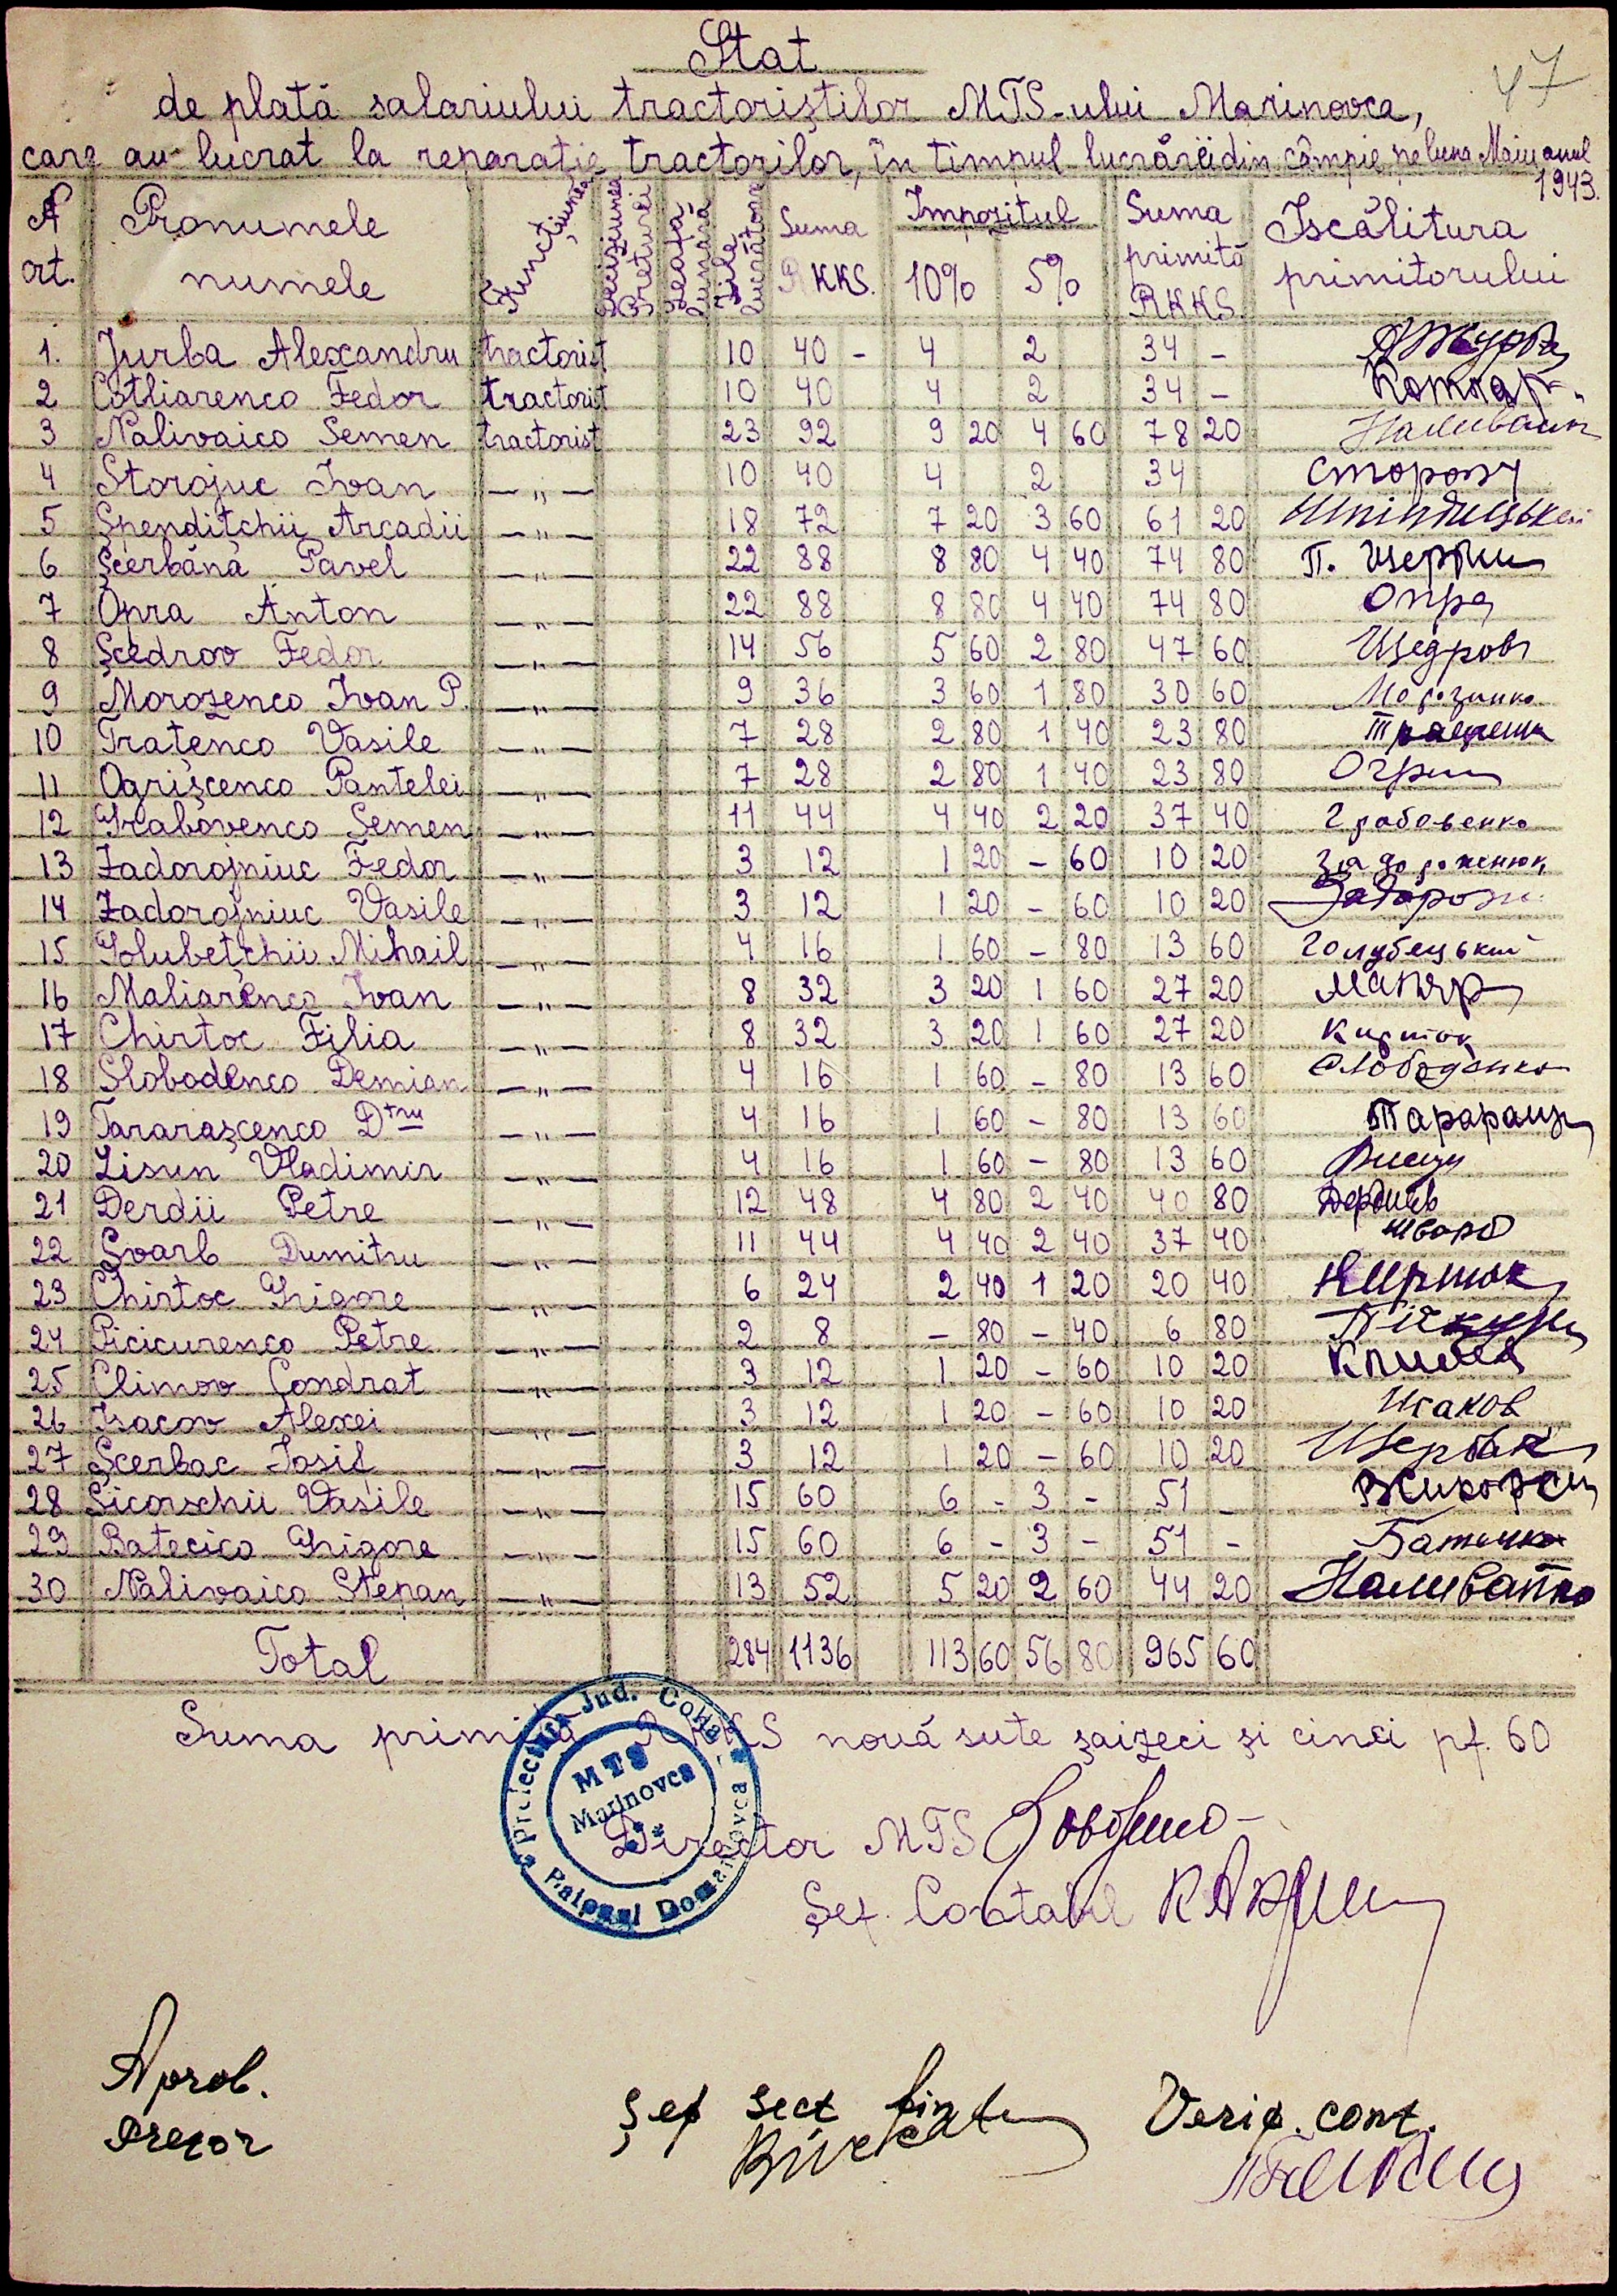 47
Stat
de plată salariului tractoriștilor MTS-ului Marinovca,
care au lucrat la reparație tractorilor, în timpul lucrării din câmpie pe luna Maiu anul
1943.
N ort. Pronumele numele Funcțiunea Deciziunea Preturei Leafa lunară Zile lucrătoare Suma RKKS. Impozitul 10% 5% Suma primită RKKS Iscălitura primitorului
1. Jurba Alexandru tractorist 10 40 - 4 2 34 -
2 Cotliarenco Fedor tractorist 10 40 4 2 34 - Котляр
3 Nalivaico Semen tractorist 23 92 9 20 4 60 78 20 Наливайк
4 Storojuc Ivan — „ — 10 40 4 2 34 Сторожу
5 Șpendițchii Arcadii — „ — 18 72 7 20 3 60 61 20
6 Șcerbână Pavel — „ — 22 88 8 80 4 40 74 80 П.
7 Opra Anton — „ — 22 88 8 80 4 40 74 80 Опря
8 Șcedrov Fedor — „ — 14 56 5 60 2 80 47 60 Щедров
9 Morozenco Ivan P. — „ — 9 36 3 60 1 80 30 60
10 Trațenco Vasile — „ — 7 28 2 80 1 40 23 80
11 Ogrișcenco Pantelei — „ — 7 28 2 80 1 40 23 80 Огрищ
12 Grabovenco Semen — „ — 11 44 4 40 2 20 37 40 Грабовенко
13 Zadorojniuc Fedor — „ — 3 12 1 20 - 60 10 20
14 Zadorojniuc Vasile — „ — 3 12 1 20 - 60 10 20 Задорож
15 Golubețchii Mihail — „ — 4 16 1 60 - 80 13 60 Голубецький
16 Maliarenco Ivan — „ — 8 32 3 20 1 60 27 20 Маляр
17 Chirtoc Filia — „ — 8 32 3 20 1 60 27 20 Кирток
18 Slobodenco Demian — „ — 4 16 1 60 - 80 13 60 Слободенко
19 Tararașcenco Dtru — „ — 4 16 1 60 - 80 13 60 Тараращ
20 Lisun Vladimir — „ — 4 16 1 60 - 80 13 60
21 Derdii Petre — „ — 12 48 4 80 2 40 40 80
22 Șvarb Dumitru — „ — 11 44 4 40 2 40 37 40 Шварб
23 Chirtoc Grigore — „ — 6 24 2 40 1 20 20 40 Киршок
24 Picicurenco Petre — „ — 2 8 - 80 - 40 6 80
25 Climov Condrat — „ — 3 12 1 20 - 60 10 20 Климов
26 Isacov Alexei — „ — 3 12 1 20 - 60 10 20 Исаков
27 Șcerbac Iosil — „ — 3 12 1 20 - 60 10 20 Щербак
28 Șicorschii Vasile — „ — 15 60 6 - 3 - 51 -
29 Batecico Grigore — „ — 15 60 6 - 3 - 51 - Батечко
30 Nalivaico Stepan — „ — 13 52 5 20 2 60 44 20 Наливайко
Total 284 1136 113 60 56 80 965 60
Suma primită RKKS nouă sute șaizeci și cinci pf. 60
Prefectura Jud. Raionul Domaniovca
MTS
Marinovca
Director MTS
Șef. Contabil
Aprob. Șef sect finan Verif. cont.
Pretor